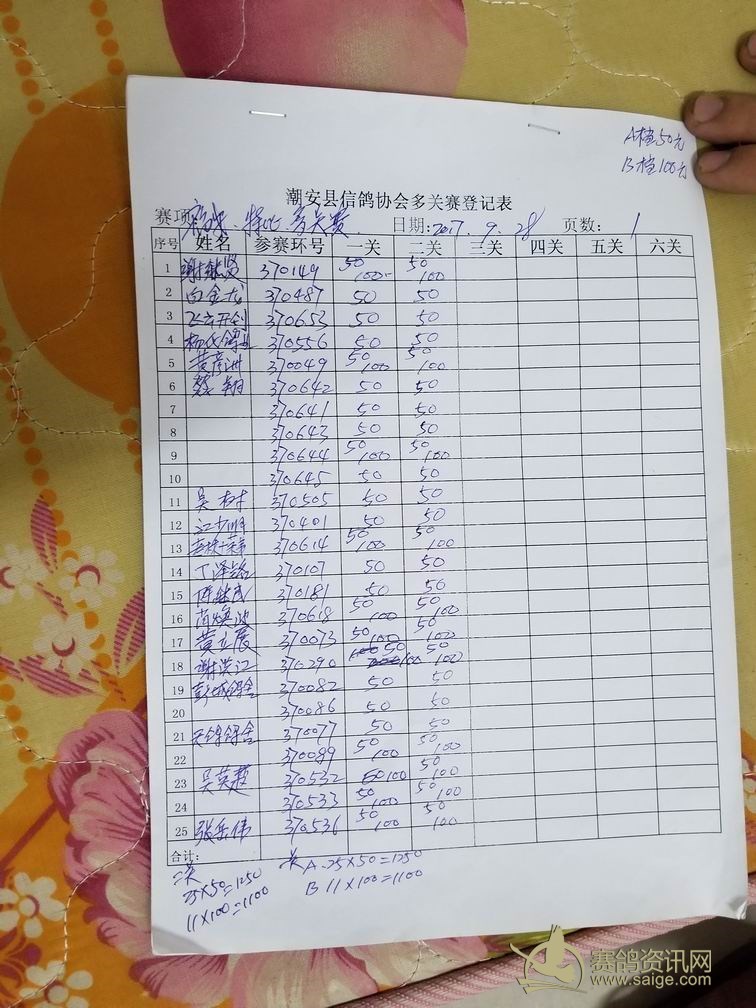 A档50元
B档100元
潮安县信鸽协会多关赛登记表
赛项 特比 多关赛 日期:2017.9.28 页数:1
序号 姓名 参赛环号 一关 二关 三关 四关 五关 六关
1 谢继贤 370149 50 100 50 100
2 白金龙 370487 50 50
3 飞云开创 370653 50 50
4 370556 50 50
5 黄彦洲 370049 50 100 50 100
6 蔡翔 370642 50 50
7 370641 50 50
8 370643 50 50
9 370644 50 100 50 100
10 370645 50 50
11 吴树 370505 50 50
12 江少顺 370401 50 50
13 370614 50 100 50 100
14 丁泽铭 370107 50 50
15 陈继武 370181 50 50
16 肖焕波 370618 50 100 50 100
17 黄立展 370073 50 100 50 100
18 谢洪江 370290 50 100 50 100
19 彭城鸽舍 370082 50 50
20 370086 50 50
21 天锦鸽舍 370077 50 50
22 370089 50 100 50 100
23 吴英 370532 50 100 50 100
24 370533 50 100 50 100
25 张岳伟 370536 50 100 50 100
合计:
二关 一关 A. 25×50=1250
25×50=1250 B 11×100=1100
11×100=1100
赛鸽资讯网
www.saige.com